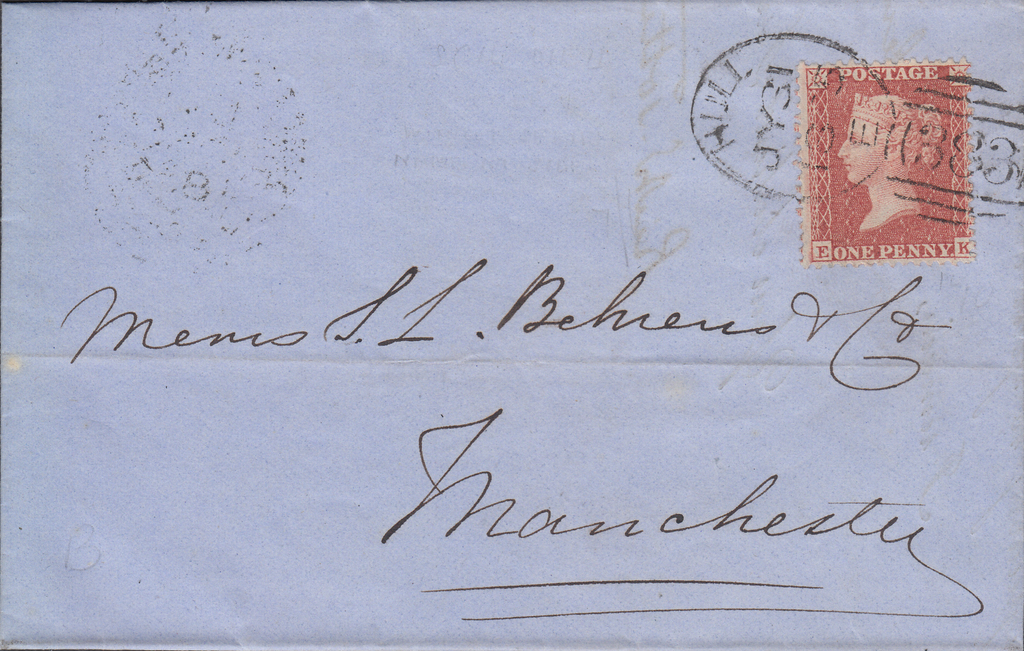 HULL
JY 31
POSTAGE
383
E ONE PENNY K
Messrs S. L. Behrens & Co
Manchester